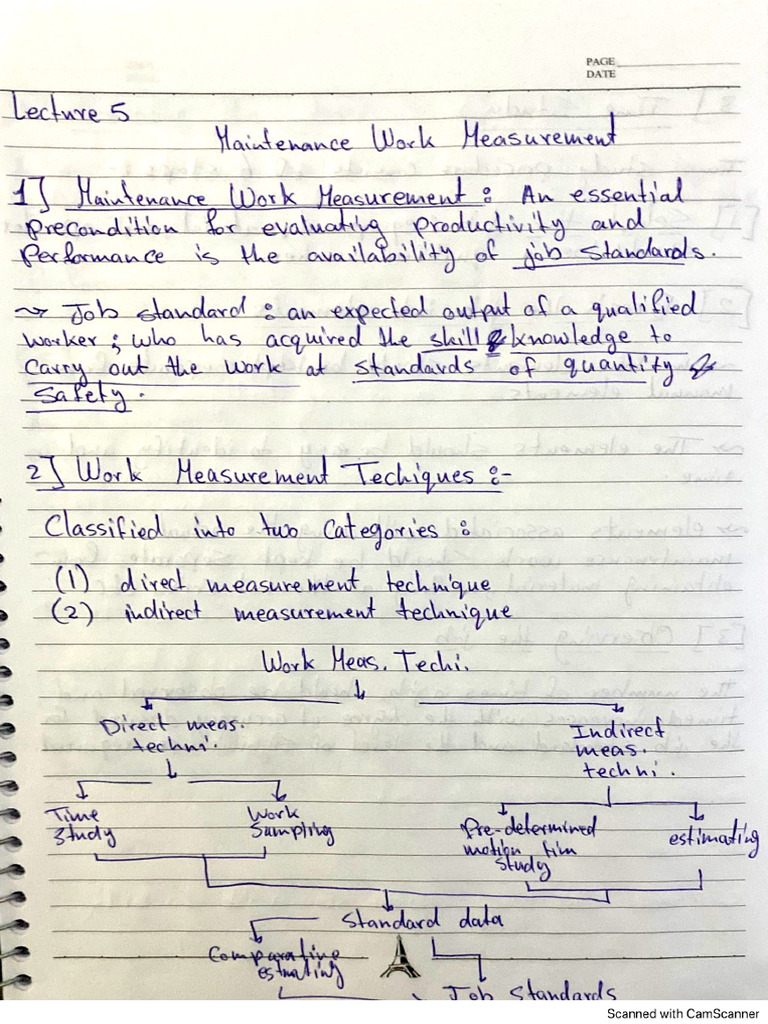 PAGE
DATE
Lecture 5
Maintenance Work Measurement
1] Maintenance Work Measurement : An essential
precondition for evaluating productivity and
performance is the availability of job standards.
~> Job standard : an expected output of a qualified
worker ; who has acquired the skill & knowledge to
carry out the work at standards of quantity &
safety.
2] Work Measurement Techiques :-
Classified into two Categories :
(1) direct measurement technique
(2) indirect measurement technique
Work Meas. Techi.
Direct meas. techni.
Indirect meas. techni.
Time study
Work Sampling
Pre-determined motion tim study
estimating
Standard data
Comparative estmating
Job Standards
Scanned with CamScanner